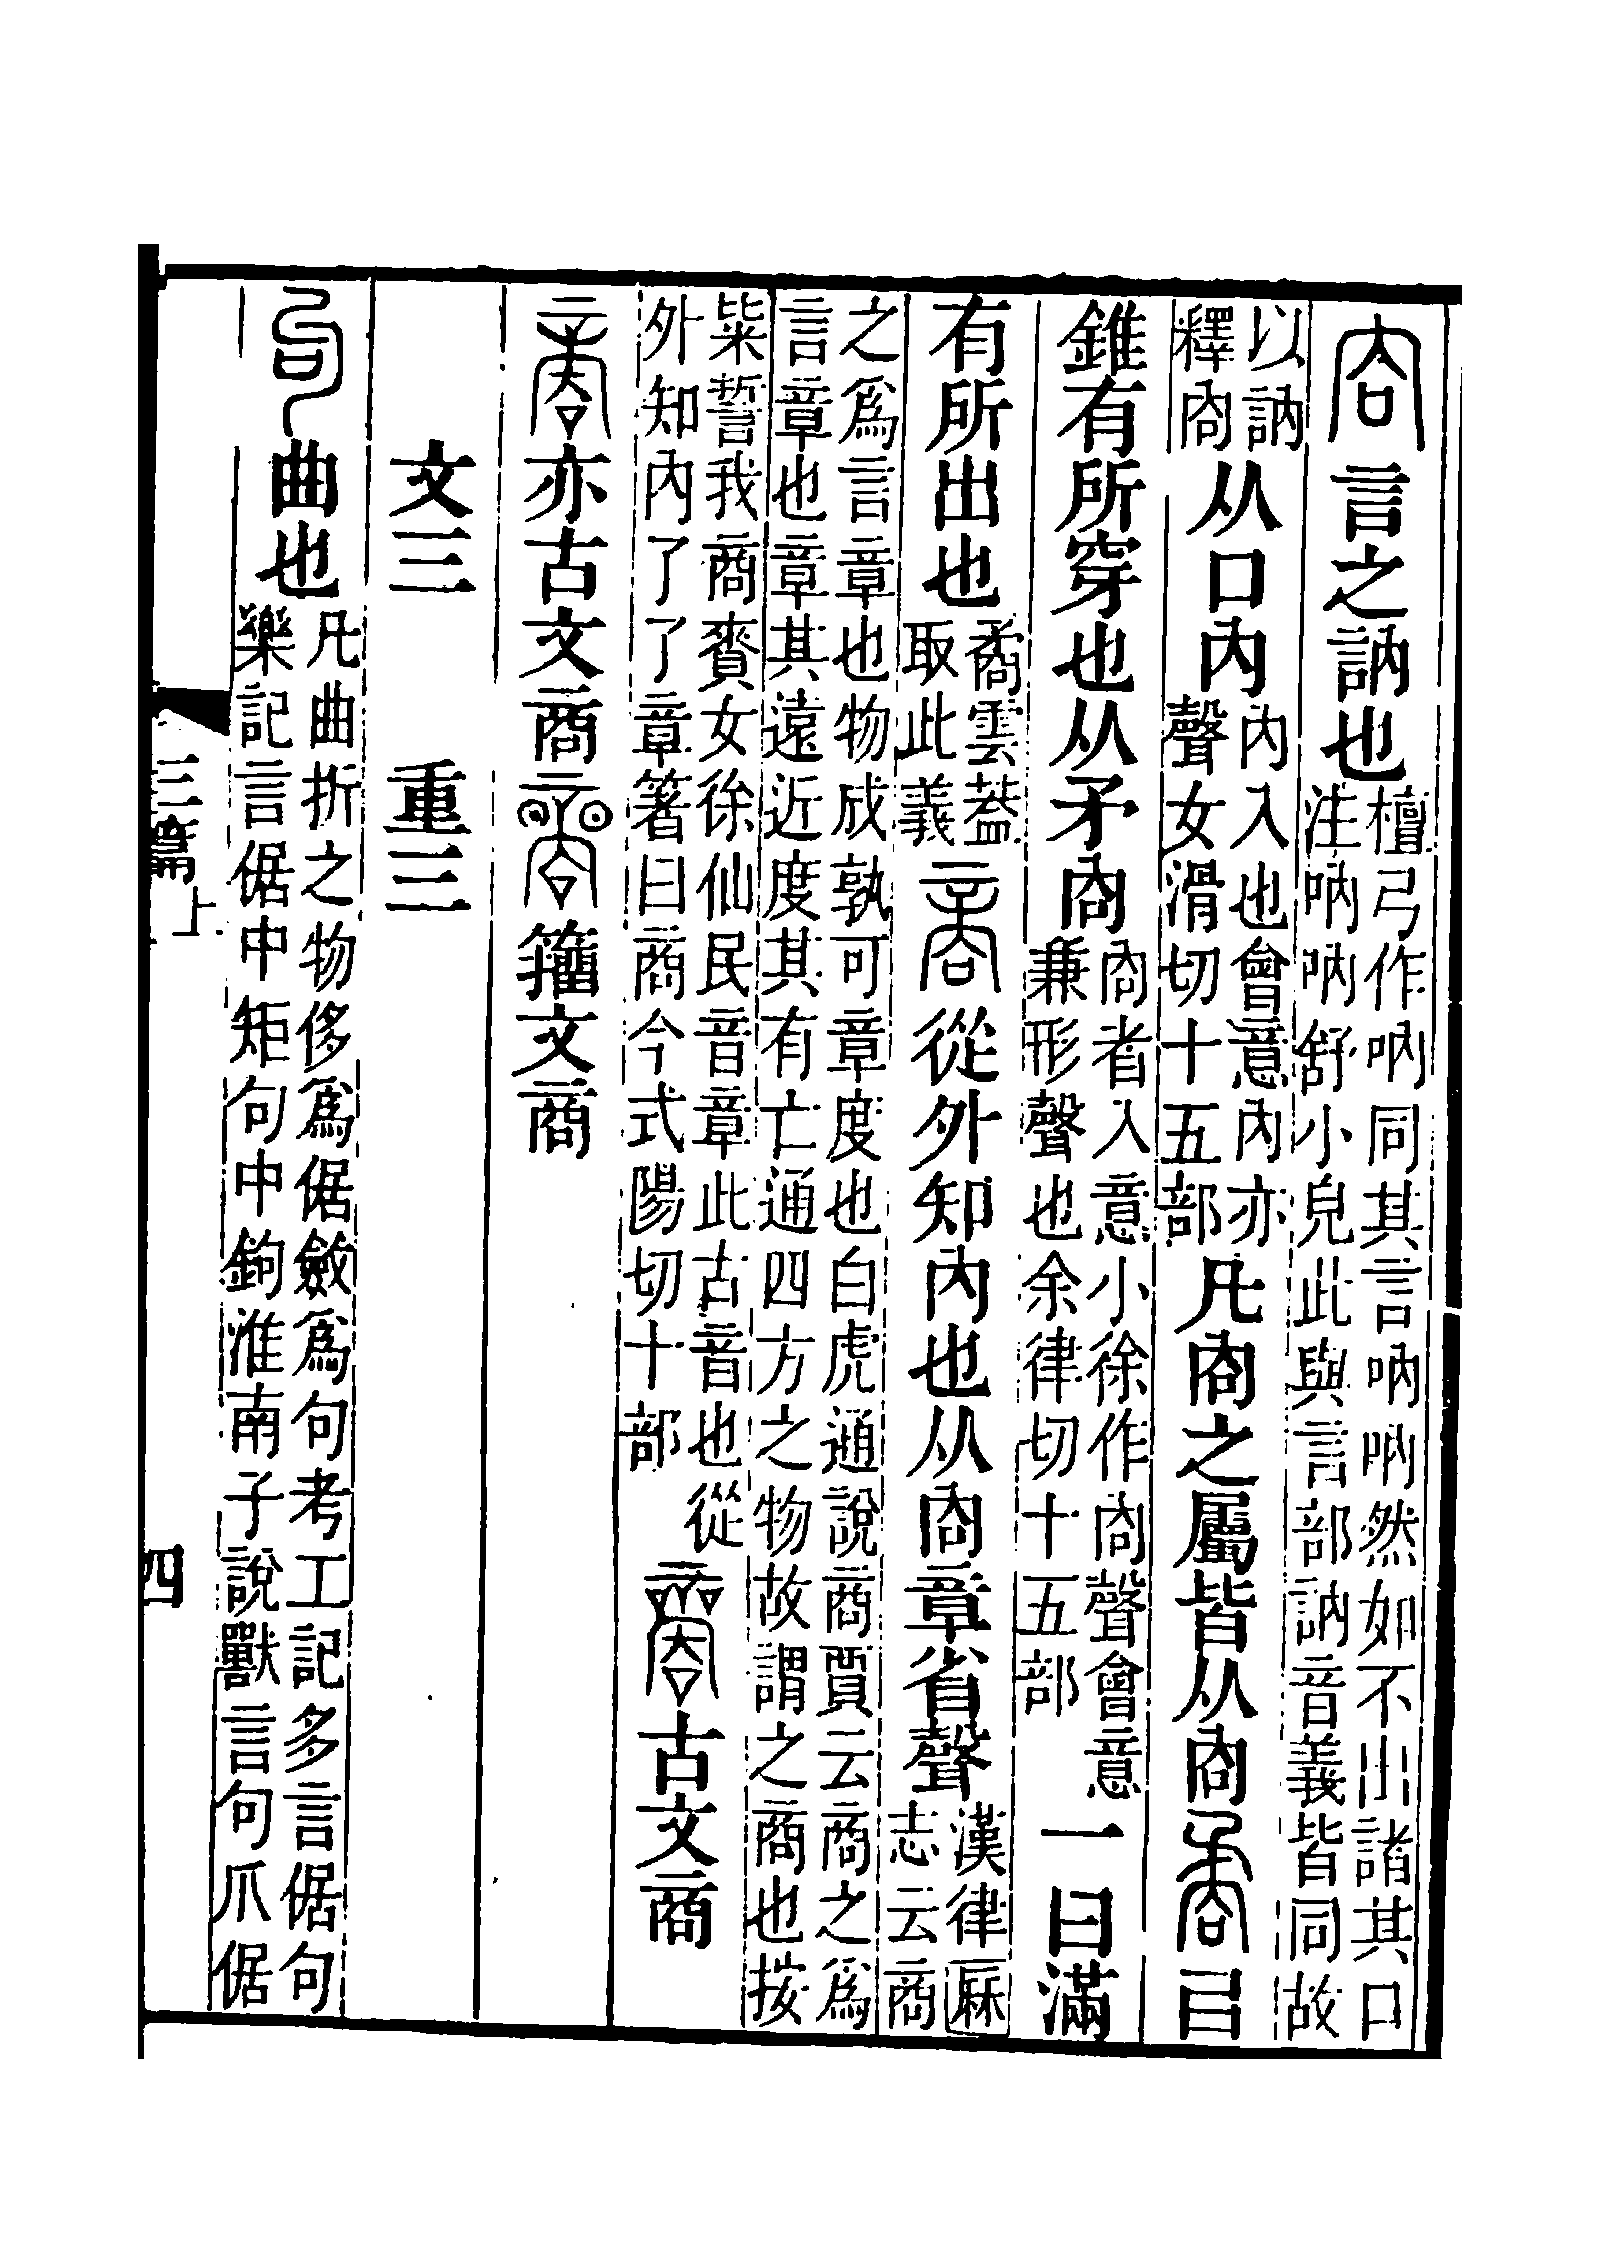 㕯言之訥也檀弓作吶同其言吶吶然如不出諸其口注吶吶舒小皃此與言部訥音義皆同故
以訥釋㕯从口內內入也會意內亦聲女滑切十五部凡㕯之屬皆从㕯矞㠯
錐有所穿也从矛㕯㕯者入意小徐作㕯聲會意兼形聲也余律切十五部一曰滿
有所出也矞雲葢取此義商從外知內也从㕯章省聲漢律厤志云商
之爲言章也物成孰可章度也白虎通說商賈云商之爲言章也章其遠近度其有亡通四方之物故謂之商也按
粊誓我商賚女徐仙民音章此古音也從外知內了了章箸曰商今式陽切十部古文商
亦古文商籒文商
文三 重三
句曲也凡曲折之物侈爲倨斂爲句考工記多言倨句樂記言倨中矩句中鉤淮南子說獸言句爪倨
三篇上 四